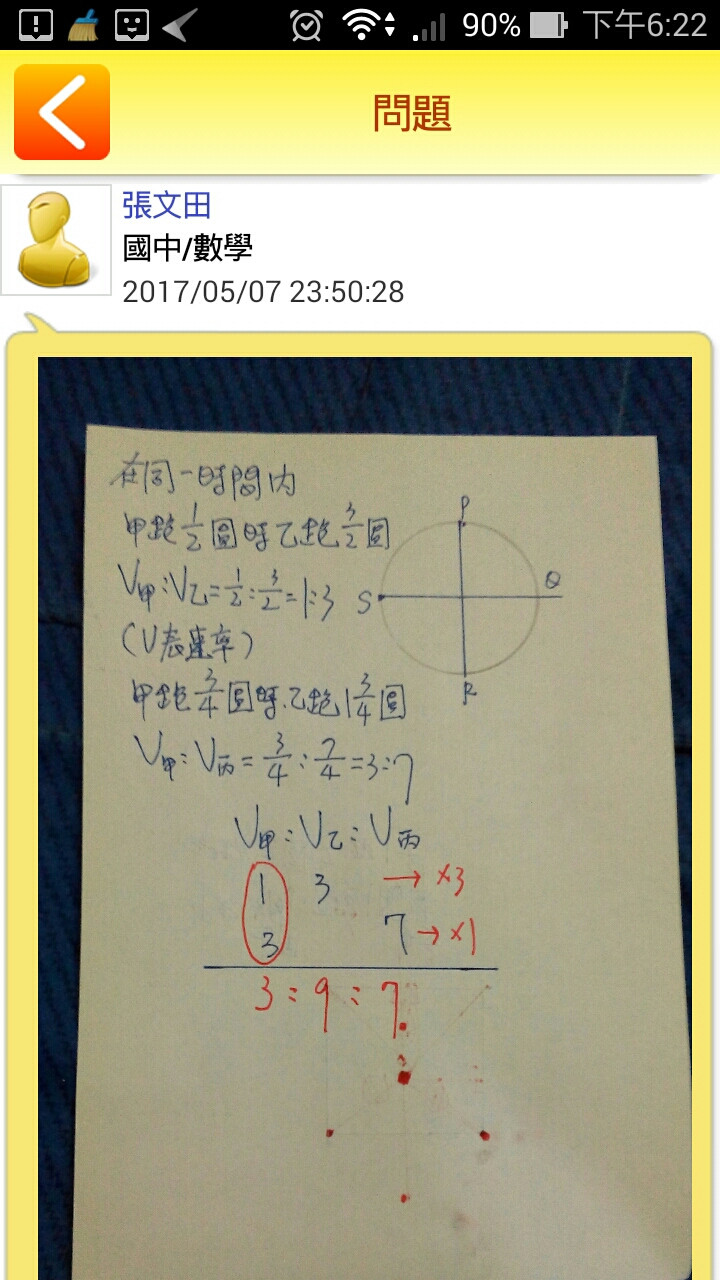 90% 下午6:22
問題
張文田
國中/數學
2017/05/07 23:50:28
在同一時間內
甲跑1/2圓時乙跑3/2圓
V甲:V乙=1/2:3/2=1:3
(V表速率)
甲跑3/4圓時乙跑1 3/4圓
V甲:V丙=3/4:7/4=3:7
V甲:V乙:V丙
1 3 → ×3
3 7 → ×1
3:9:7
P
Q
S
R